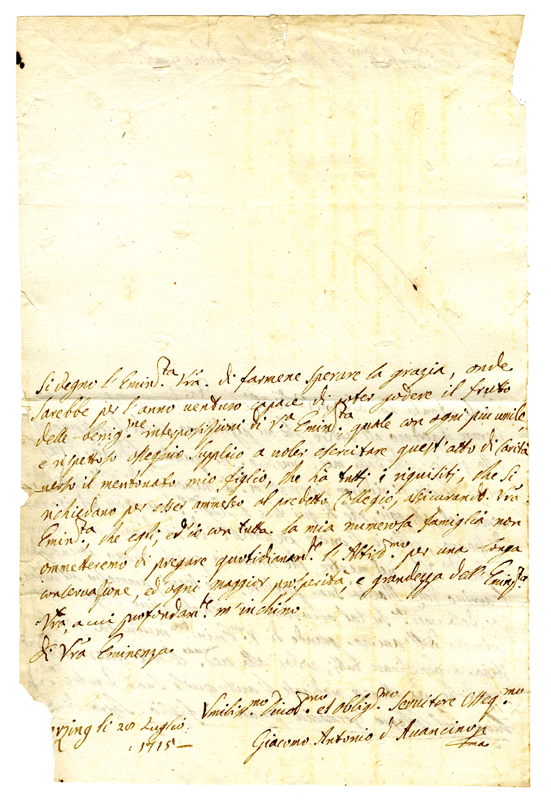 si degno l'Emin.ta Vra. di farmene sperare la grazia, onde
sarebbe per l'anno venturo capace di poter godere il frutto
delle benig.me interposizioni di V.ra Emin.ta quale con ogni più umile
e rispettoso ossequio supplico a voler esercitare quest'atto di carità
verso il mentonato mio figlio, che ha tutti i riquisiti, che si
richiedano per esser ammesso al predetto Collegio, assicurando Vra
Emin.ta, che egli, ed io con tutta la mia numerosa famiglia non
ommetteremo di pregare quotidianam.te l'Altiss.mo per una longa
conservazione, ed ogni maggior prosperità, e grandezza dell' Emin.ta
Vra, a cui profondam.te m'inchino
Di Vra Eminenza
Umiliss.mo et oblig.mo Servitore Osseq.mo
li 20 Luglio
1715
Giacomo Antonio d'Avancino